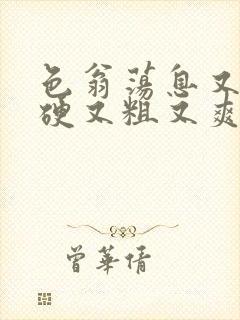 色翁荡息又
硬又粗又爽
曾華倩